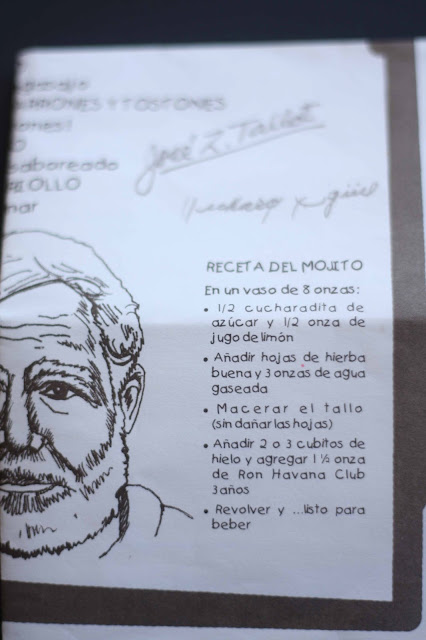 TOSTONES
saboreado
José Z. Tallet
RECETA DEL MOJITO
En un vaso de 8 onzas:
• 1/2 cucharadita de
azúcar y 1/2 onza de
jugo de limón
• Añadir hojas de hierba
buena y 3 onzas de agua
gaseada
• Macerar el tallo
(sin dañar las hojas)
• Añadir 2 o 3 cubitos de
hielo y agregar 1 ½ onza
de Ron Havana Club
3 años
• Revolver y ...listo para
beber